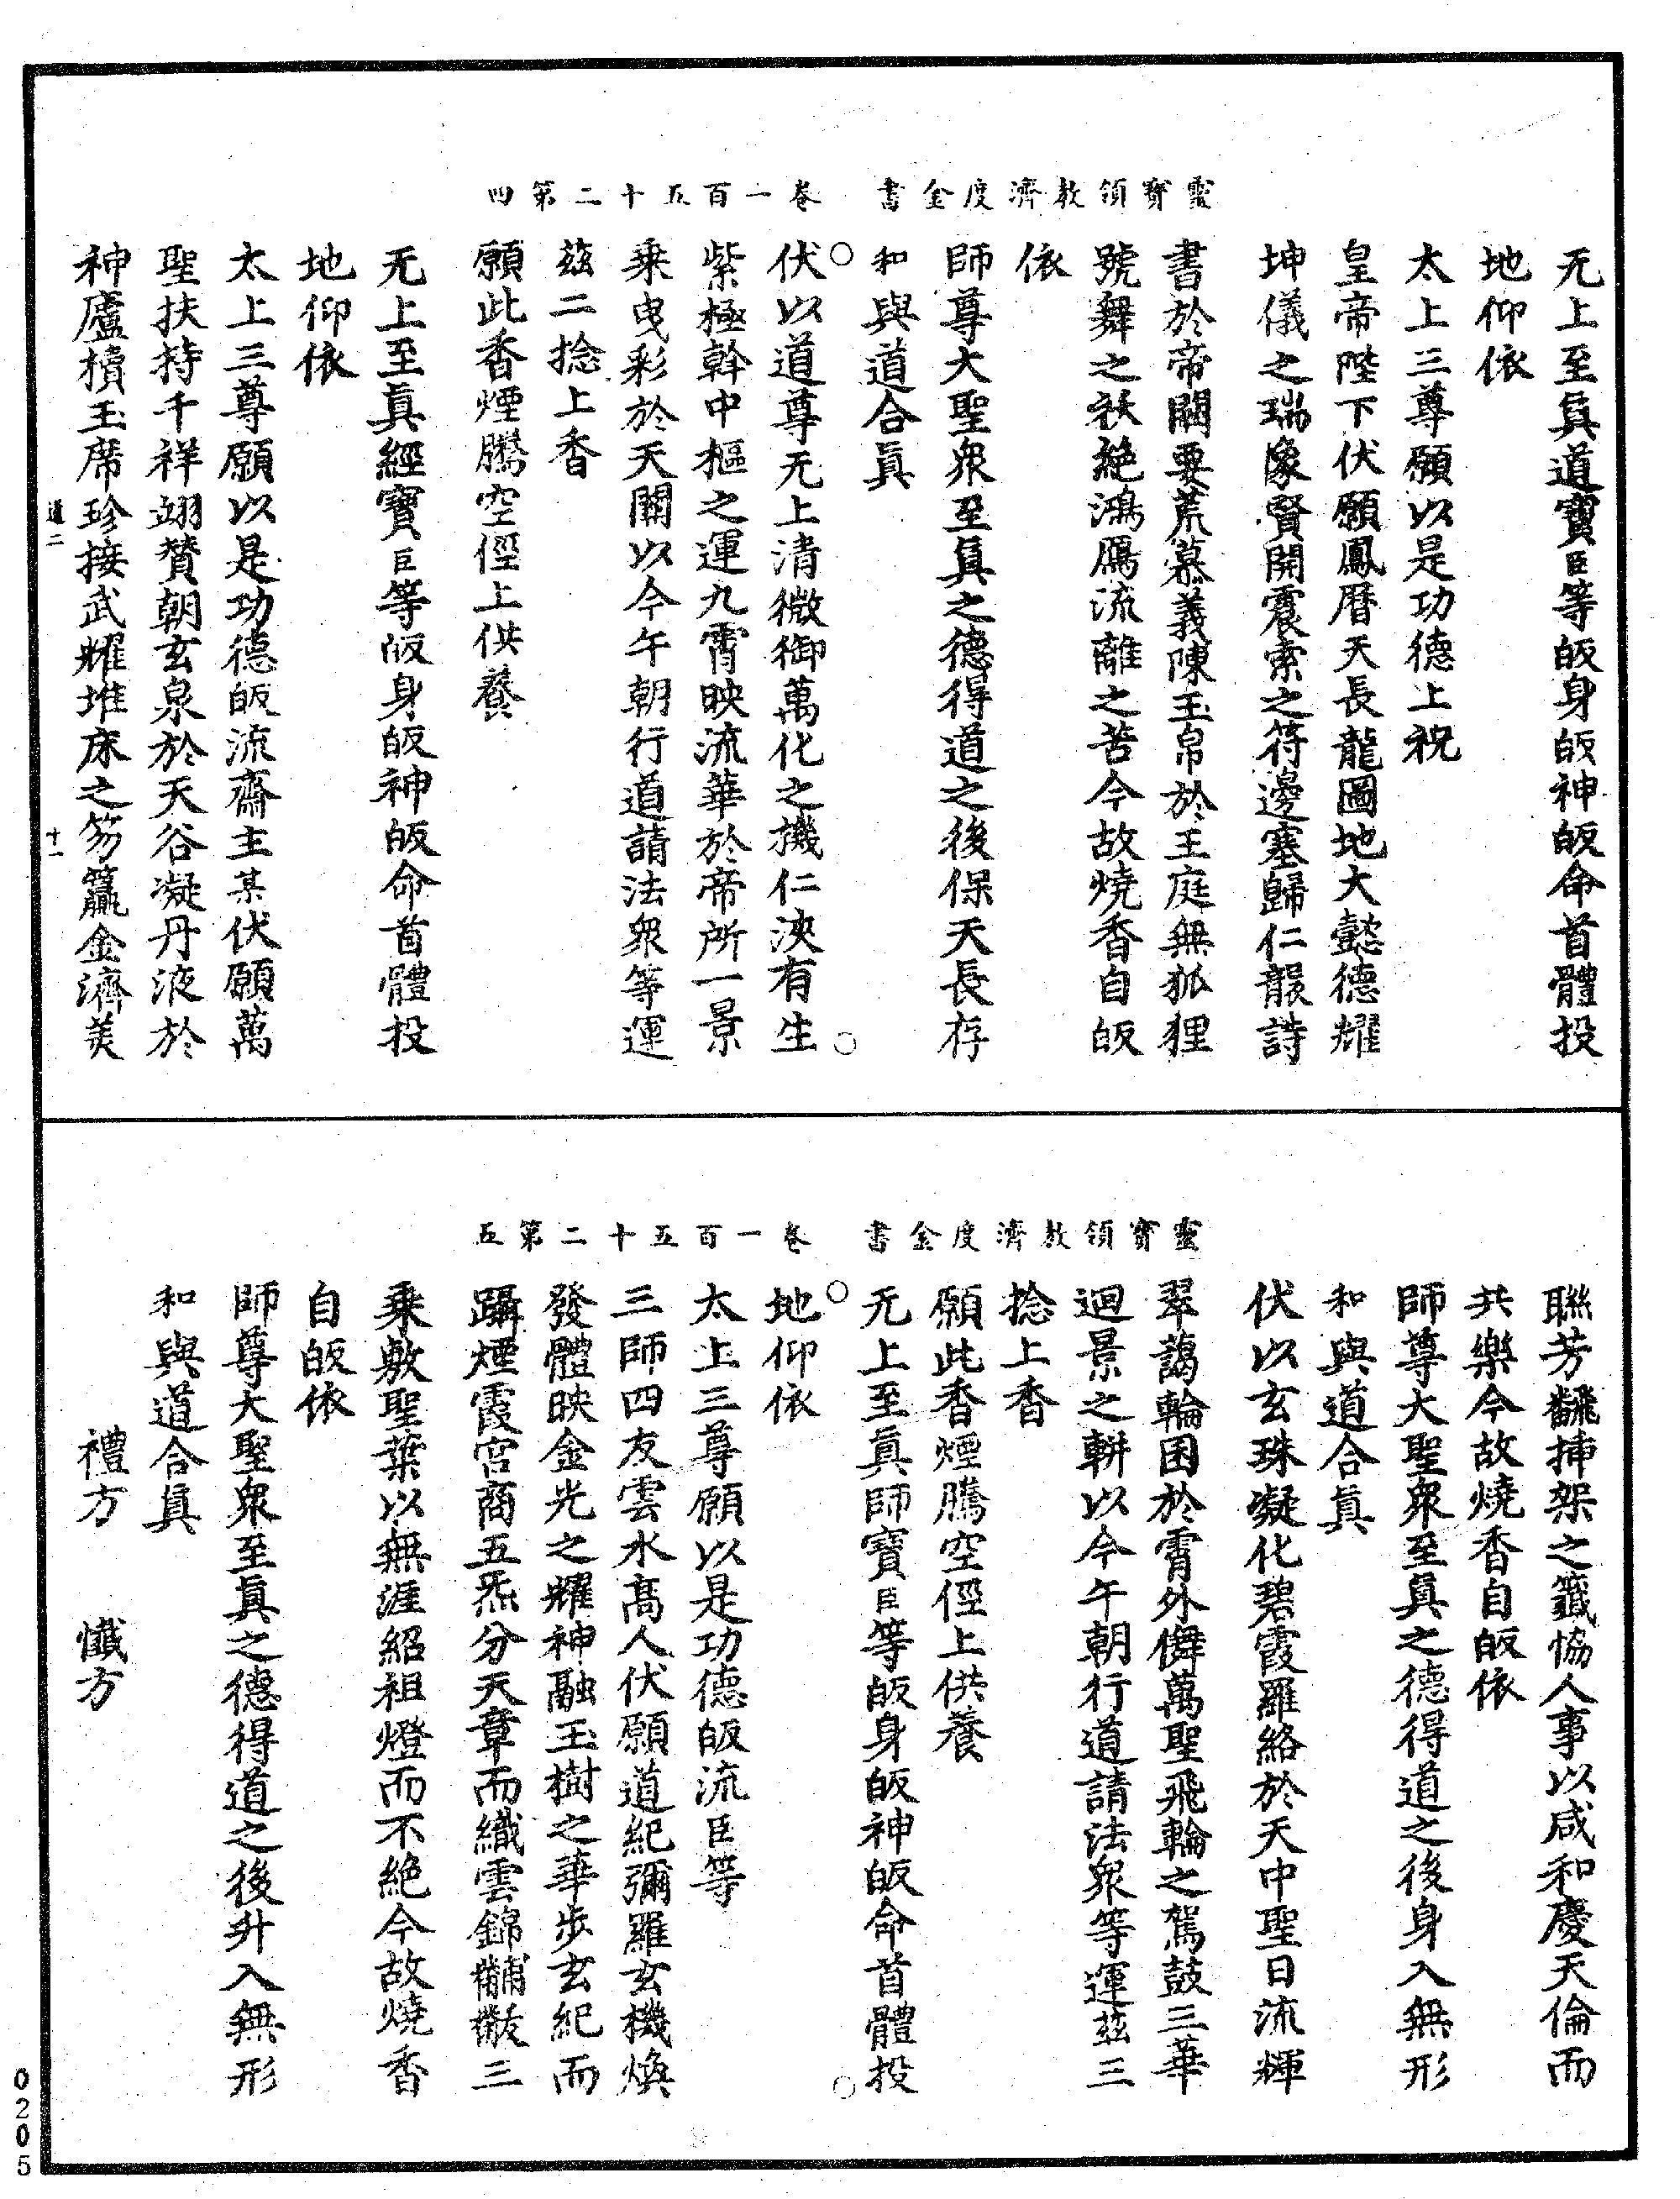 靈寶領教濟度金書　卷一百五十二第四
无上至眞道寶臣等皈身皈神皈命首體投
地仰依
太上三尊願以是功德上祝
皇帝陛下伏願鳳曆天長龍圖地大懿德耀
坤儀之瑞像賢開震索之符邊塞歸仁韜詩
書於帝閫要荒慕義陳玉帛於王庭無狐狸
號舞之祅絶鴻鴈流離之苦今故燒香自皈
依
師尊大聖衆至眞之德得道之後保天長存
和與道合眞
伏以道尊无上清微御萬化之機仁浹有生
紫極幹中樞之運九霄映流華於帝所一景
乘曳彩於天關以今午朝行道請法衆等運
茲二捻上香
願此香煙騰空俓上供養
无上至眞經寶臣等皈身皈神皈命首體投
地仰依
太上三尊願以是功德皈流齋主某伏願萬
聖扶持千祥翊贊朝玄泉於天谷凝丹液於
神廬櫝玉席珍接武耀堆床之笏籯金濟美
道二　十一
靈寶領教濟度金書　卷一百五十二第五
聯芳翻揷架之籤恊人事以咸和慶天倫而
共樂今故燒香自皈依
師尊大聖衆至眞之德得道之後身入無形
和與道合眞
伏以玄珠凝化碧霞羅絡於天中聖日流輝
翠藹輪囷於霄外僲萬聖飛輪之駕鼓三華
迴景之軿以今午朝行道請法衆等運茲三
捻上香
願此香煙騰空俓上供養
无上至眞師寶臣等皈身皈神皈命首體投
地仰依
太上三尊願以是功德皈流臣等
三師四友雲水髙人伏願道紀彌羅玄機煥
發體映金光之耀神融玉樹之華步玄紀而
躡煙霞宮商五炁分天章而織雲錦黼黻三
乘敷聖葉以無涯紹祖燈而不絶今故燒香
自皈依
師尊大聖衆至眞之德得道之後升入無形
和與道合眞
禮方　懺方
0205